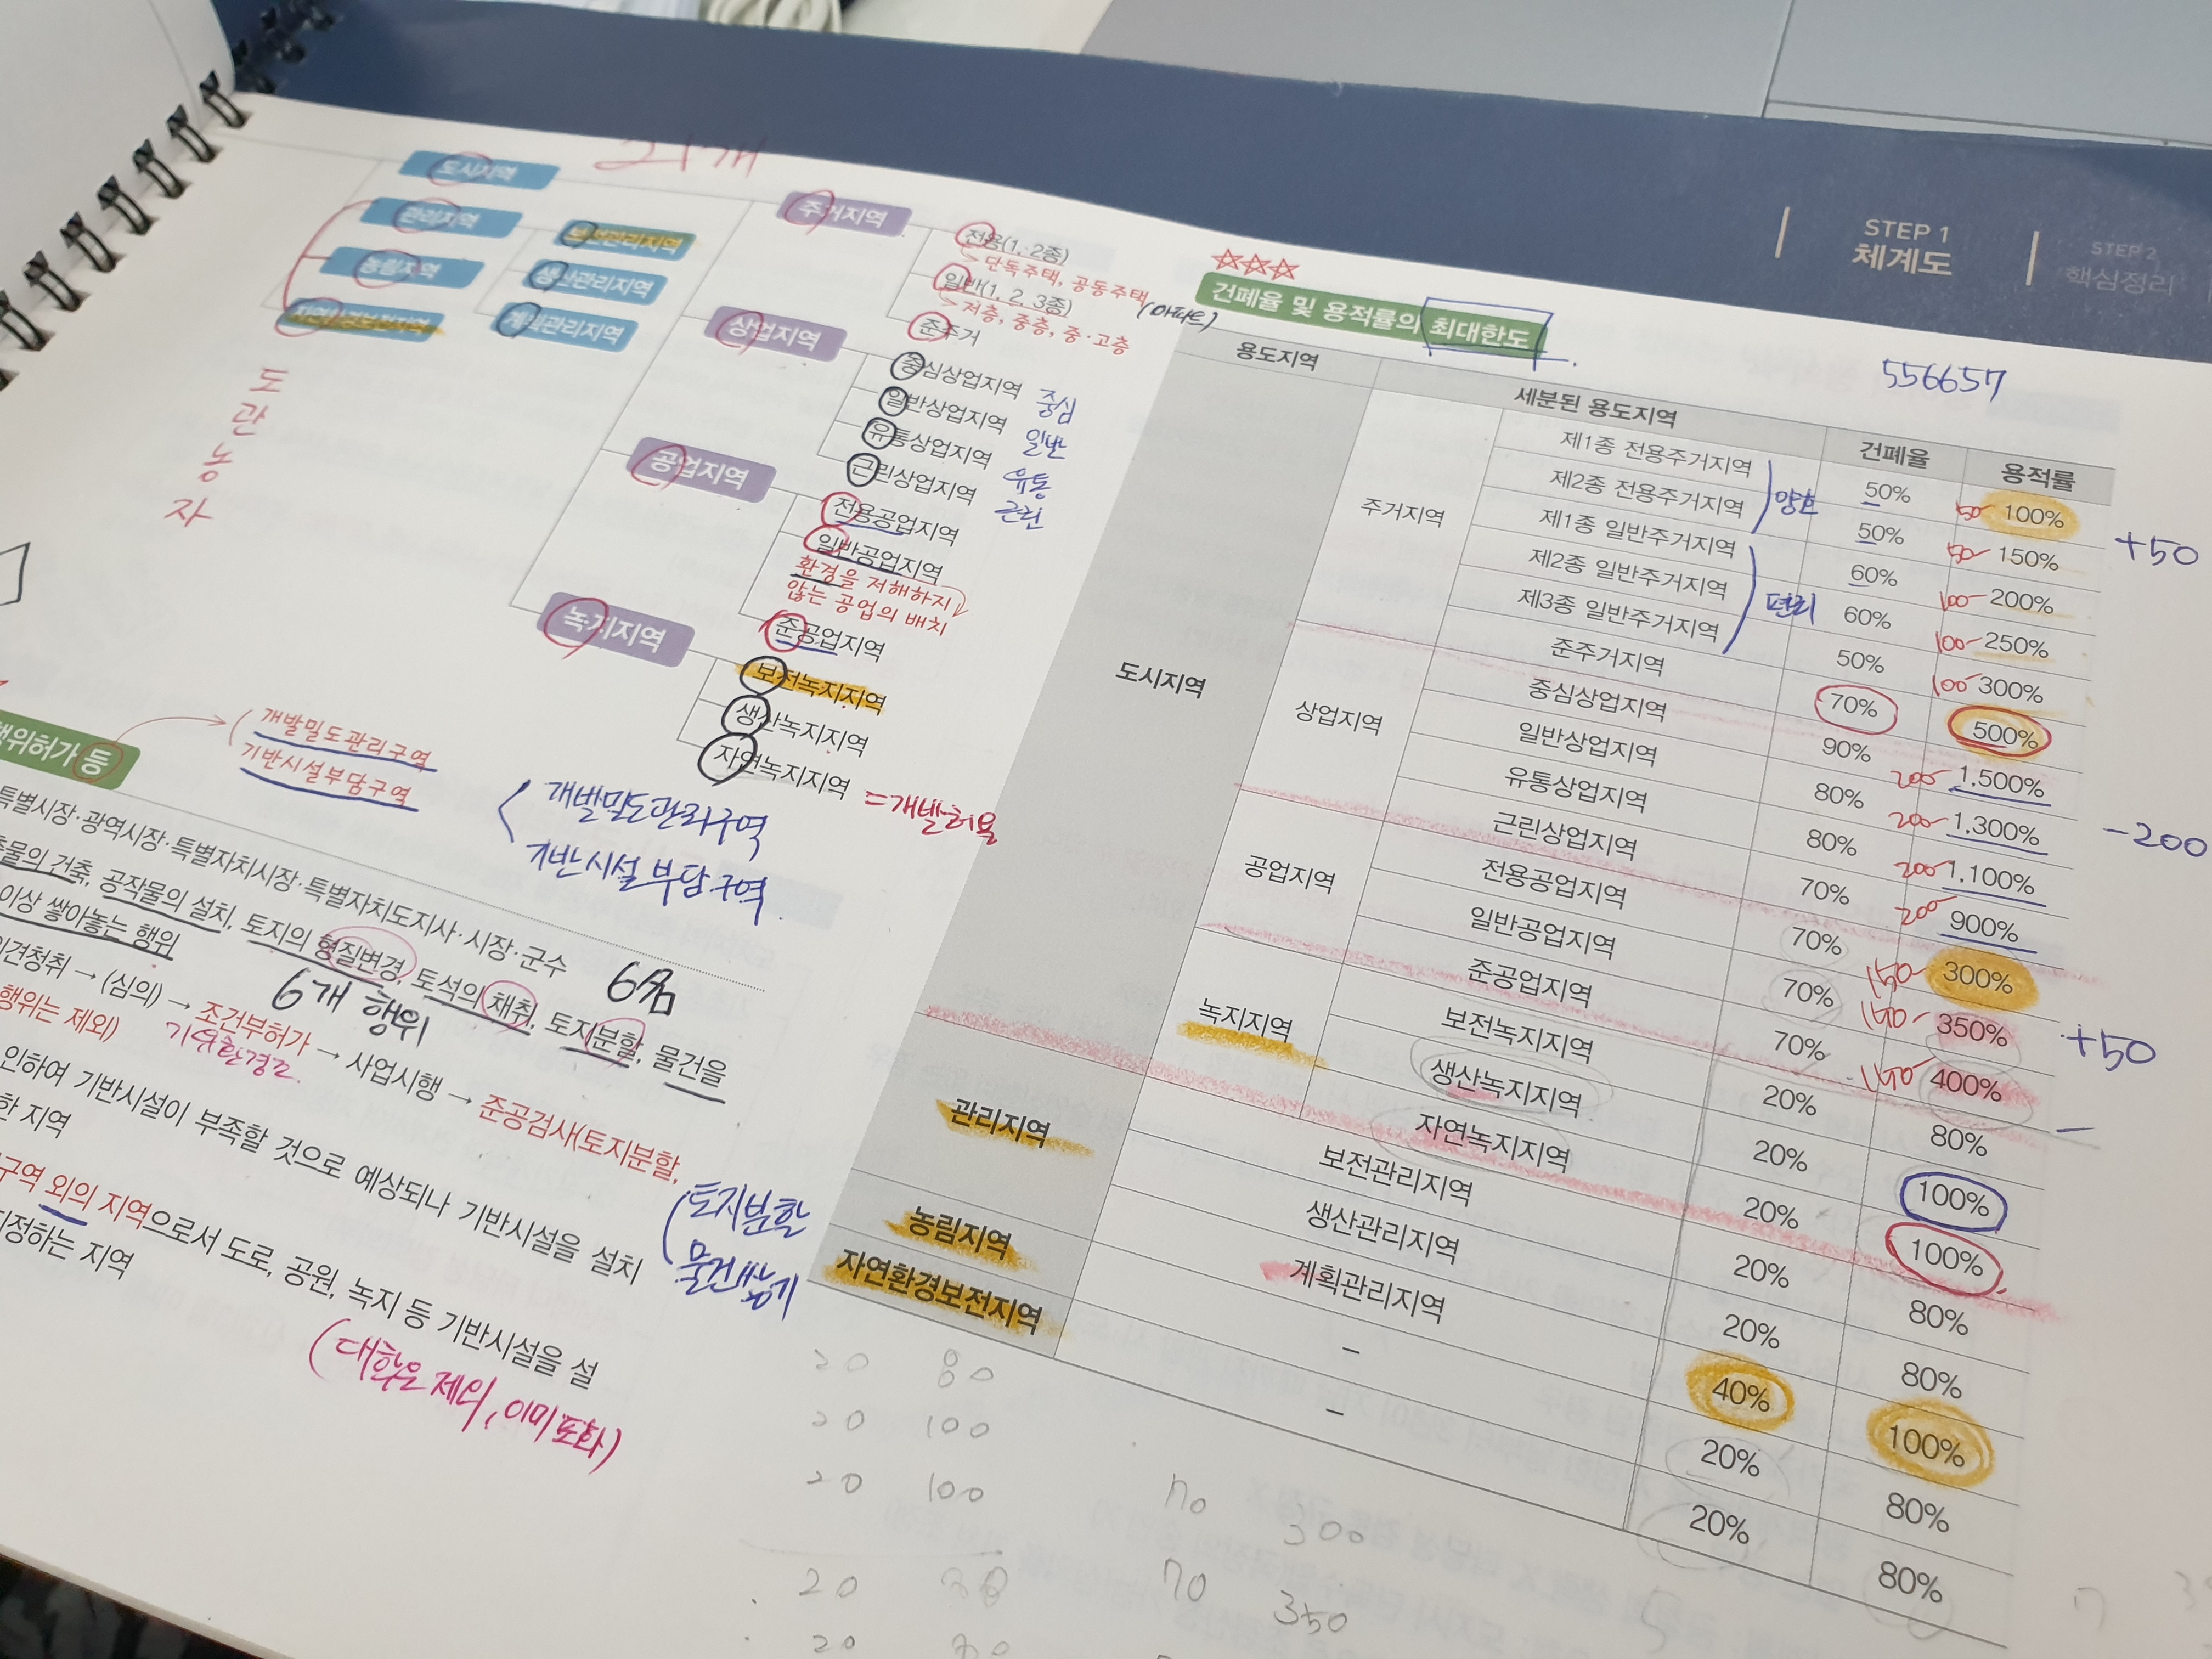 21개
도시지역
관리지역
농림지역
자연환경보전지역
보전관리지역
생산관리지역
계획관리지역
도
관
농
자
주거지역
전용(1, 2종)
단독주택, 공동주택
(아파트)
일반(1, 2, 3종)
저층, 중층, 중·고층
준주거
상업지역
중심상업지역 중심
일반상업지역 일반
유통상업지역 유통
근린상업지역 근린
공업지역
전용공업지역
일반공업지역
환경을 저해하지
않는 공업의 배치
준공업지역
녹지지역
보전녹지지역
생산녹지지역
자연녹지지역 =개발허용
행위허가 등
(개발밀도관리구역
기반시설부담구역
개발밀도관리구역
기반시설 부담구역
특별시장·광역시장·특별자치시장·특별자치도지사·시장·군수
6名
축물의 건축, 공작물의 설치, 토지의 형질변경, 토석의 채취, 토지분할, 물건을
이상 쌓아놓는 행위
6개 행위
의견청취 → (심의) → 조건부허가 → 사업시행 → 준공검사(토지분할,
행위는 제외)
기위환경조
(토지분할
물건쌓기
인하여 기반시설이 부족할 것으로 예상되나 기반시설을 설치
한 지역
구역 외의 지역으로서 도로, 공원, 녹지 등 기반시설을 설
지정하는 지역
(대학은 제외, 이미 포화)
STEP 1
체계도
STEP 2
핵심정리
☆☆☆
건폐율 및 용적률의 최대한도
556657
용도지역 세분된 용도지역 건폐율 용적률
도시지역
주거지역
제1종 전용주거지역 50% 50 100%
제2종 전용주거지역 50% 50 150%
양호
제1종 일반주거지역 60% 100 200%
제2종 일반주거지역 60% 100 250%
제3종 일반주거지역 50% 100 300%
편리
준주거지역 70% 500%
+50
상업지역
중심상업지역 90% 200 1,500%
일반상업지역 80% 200 1,300%
유통상업지역 80% 200 1,100%
근린상업지역 70% 200 900%
-200
공업지역
전용공업지역 70% 150 300%
일반공업지역 70% 150 350%
준공업지역 70% 150 400%
+50
녹지지역
보전녹지지역 20% 80%
생산녹지지역 20% 100%
자연녹지지역 20% 100%
관리지역
보전관리지역 20% 80%
생산관리지역 20% 80%
계획관리지역 40% 100%
농림지역 – 20% 80%
자연환경보전지역 – 20% 80%
20 80
20 100
20 100
20
20
70 300
70 350